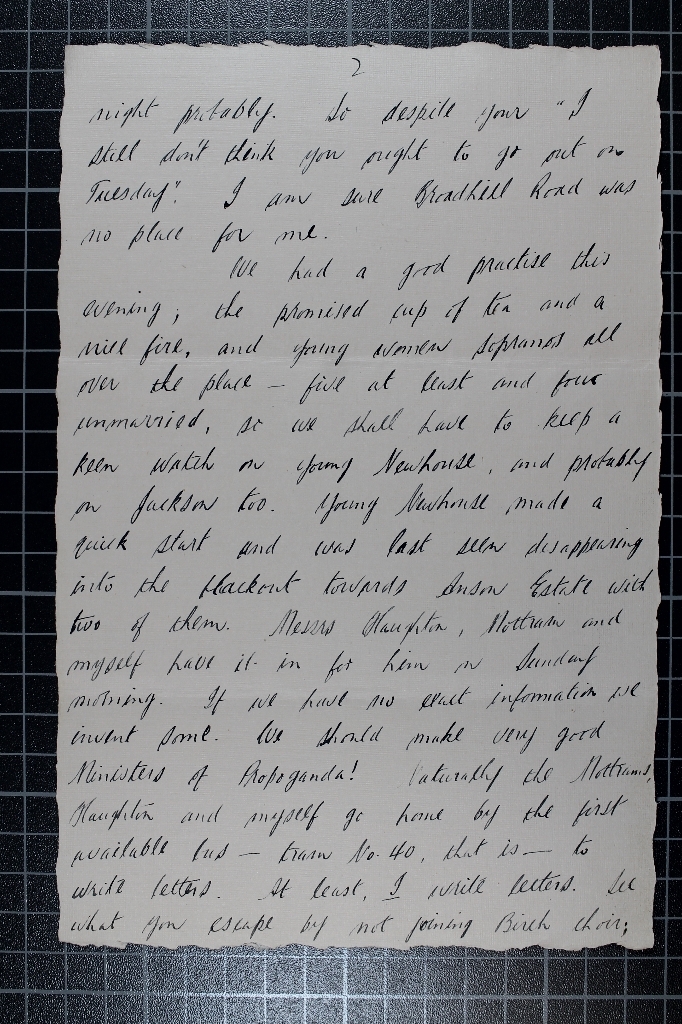 2
night probably. So despite your "I
still don't think you ought to go out on
Tuesday". I am sure Broadhill Road was
no place for me.
We had a good practise this
evening; the promised cup of tea and a
nice fire, and young women sopranos all
over the place – five at least and four
unmarried, so we shall have to keep a
keen watch on young Newhouse, and probably
on Jackson too. Young Newhouse made a
quick start and was last seen disappearing
into the blackout towards Anson Estate with
two of them. Messrs Haughton, Mottram and
myself have it in for him on Sunday
morning. If we have no exact information we
invent some. We should make very good
Ministers of Propoganda! Naturally the Mottrams,
Haughton and myself go home by the first
available bus – tram No. 40, that is – to
write letters. At least, I write letters. See
what you escape by not joining Birch choir;